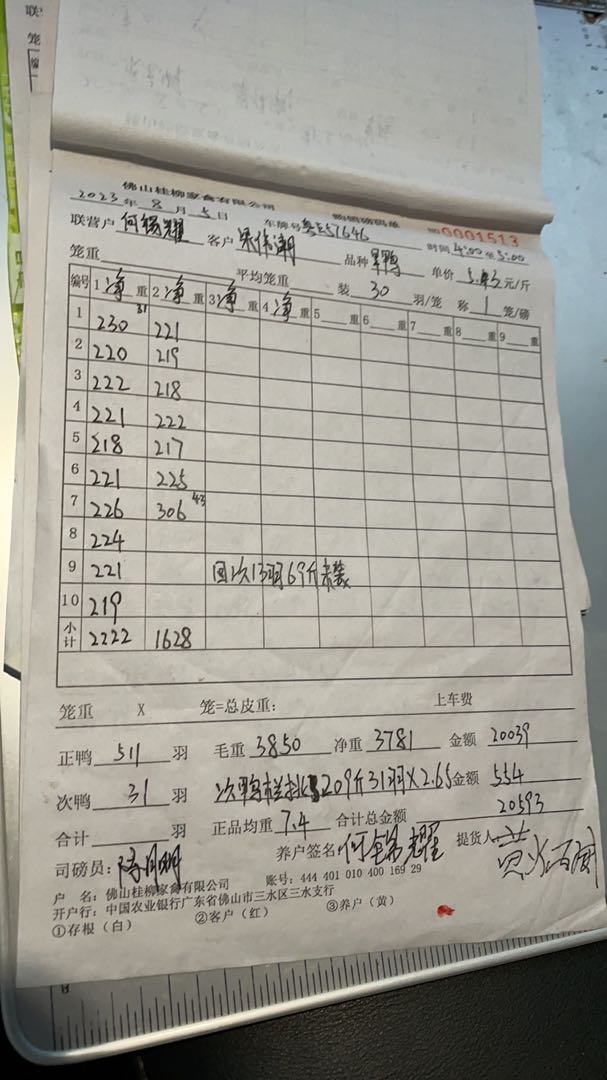 佛山桂柳家禽有限公司 购销磅码单
2023年 8 月 5 日 车牌号 粤E57646 NO 0001513
联营户 何锦耀 客户 品种 单价 元/斤 时间 4:00 至 5:00
笼重 平均笼重 装 30 羽/笼 称 1 笼/磅
编号 1 净 重 2 净 重 3 净 重 4 净 重 5 重 6 重 7 重 8 重 9 重
1 230 31 221
2 220 219
3 222 218
4 221 222
5 218 217
6 221 225
7 226 306 43
8 224
9 221 回次13羽69斤未装
10 219
小计 2222 1628
笼重 X 笼=总皮重: 上车费
正鸭 511 羽 毛重 3850 净重 3781 金额 20039
次鸭 31 羽 次鸭 209斤31羽X2.65 金额 554
合计 羽 正品均重 7.4 合计总金额 20593
司磅员: 养户签名 何锦耀 提货人
户 名: 佛山桂柳家禽有限公司 账号: 444 401 010 400 169 29
开户行: 中国农业银行广东省佛山市三水区三水支行
①存根（白） ②客户（红） ③养户（黄）